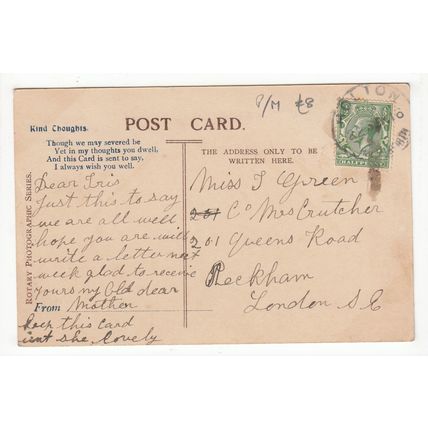 P/M £8
POST CARD.
Kind Thoughts.
Though we may severed be
Yet in my thoughts you dwell,
And this Card is sent to say,
I always wish you well.
THE ADDRESS ONLY TO BE
WRITTEN HERE.
ROTARY PHOTOGRAPHIC SERIES.
Dear Iris
Just this to say
we are all well
hope you are will
write a letter next
week glad to receive
yours my Old dear
From Mother
keep this Card
isnt she lovely
Miss I Green
C/o Mrs Crutcher
201 Queens Road
Peckham
London S.E
HALFPENNY